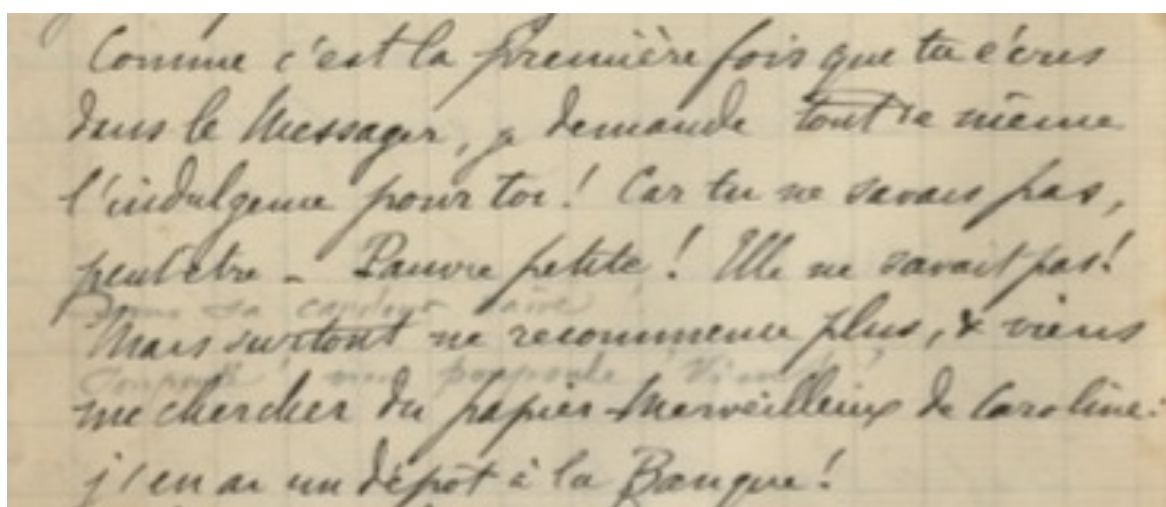 Comme c'est la première fois que tu écris
dans le Messager, je demande tout de même
l'indulgence pour toi! Car tu ne savais pas,
peut être - Pauvre petite! Elle ne savait pas!
sa candeur
Mais surtout ne recommence plus, & viens
me chercher du papier-Merveilleux de Caroline.
j'en ai un dépôt à la Banque!